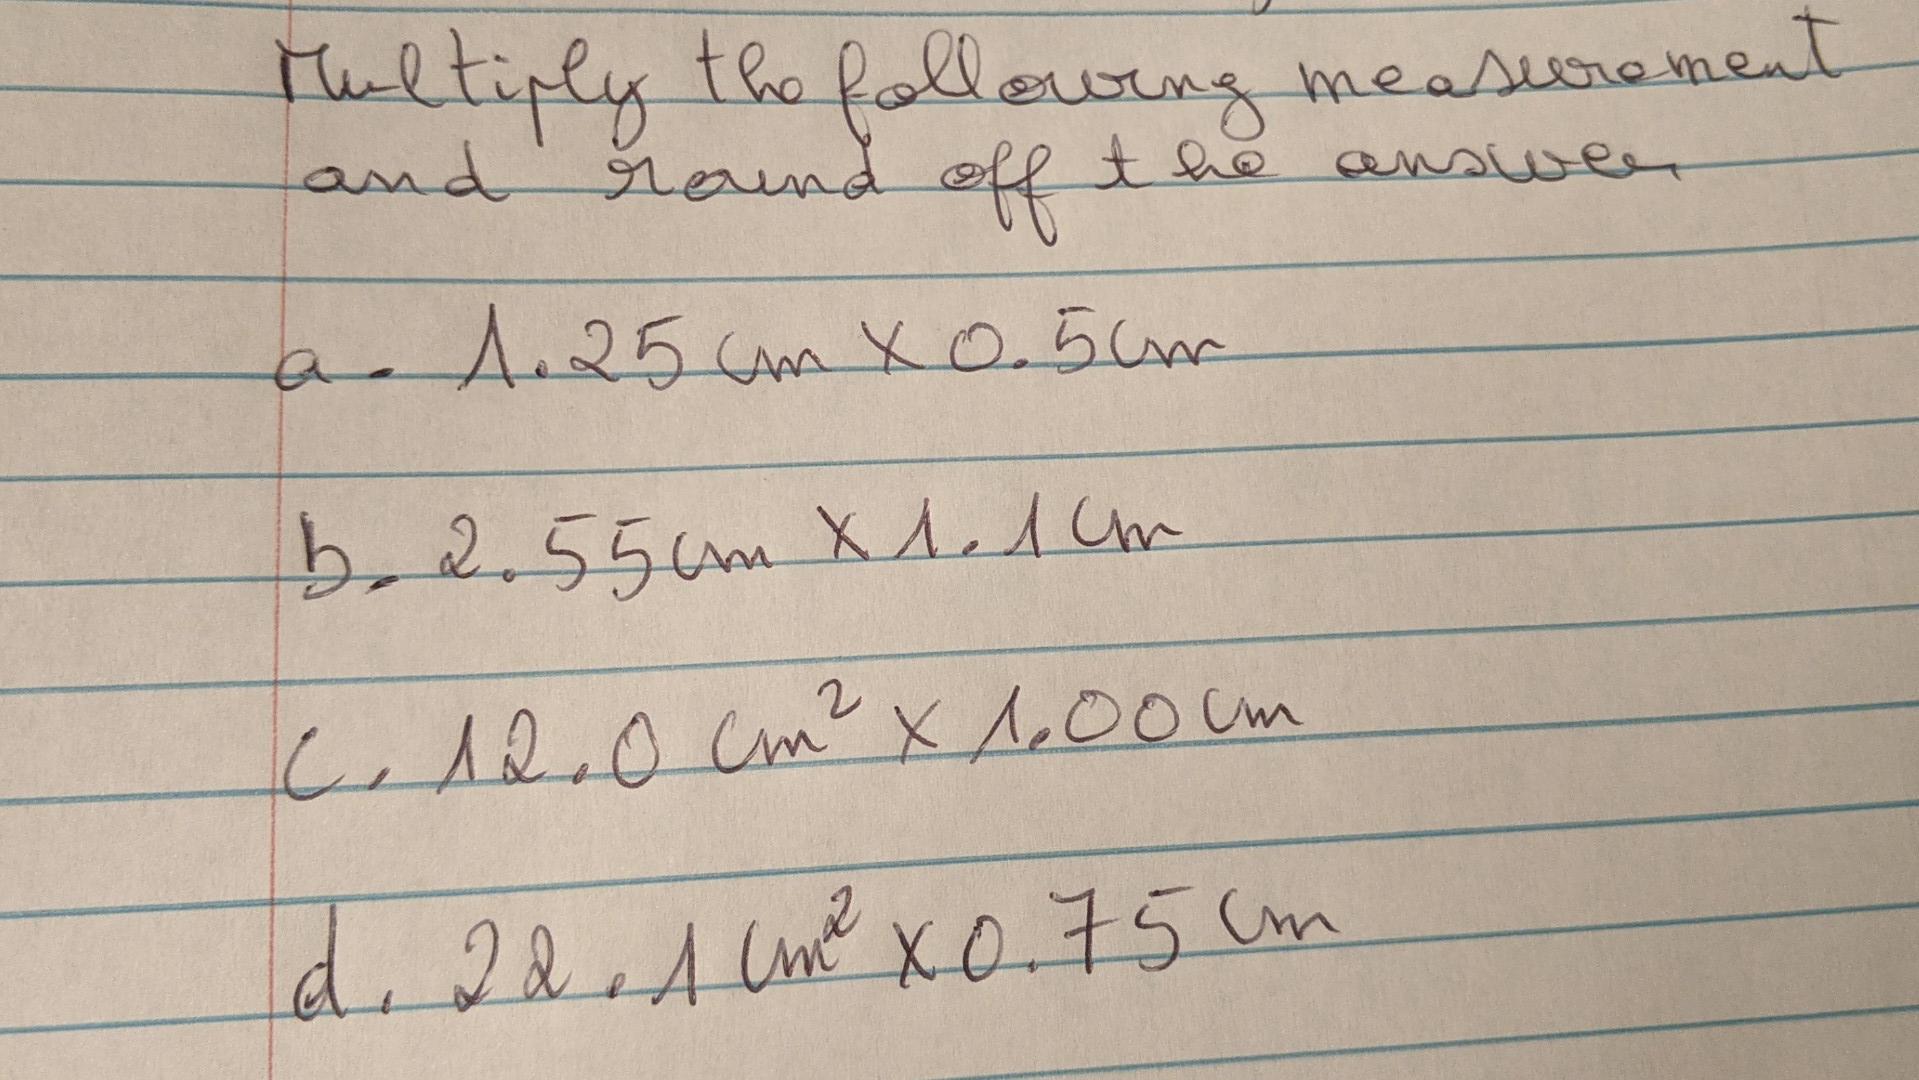 Multiply the following measurement
and round off the answer
a. 1.25 cm x 0.5 cm
b. 2.55 cm x 1.1 cm
c. 12.0 cm² x 1.00 cm
d. 22.1 cm² x 0.75 cm